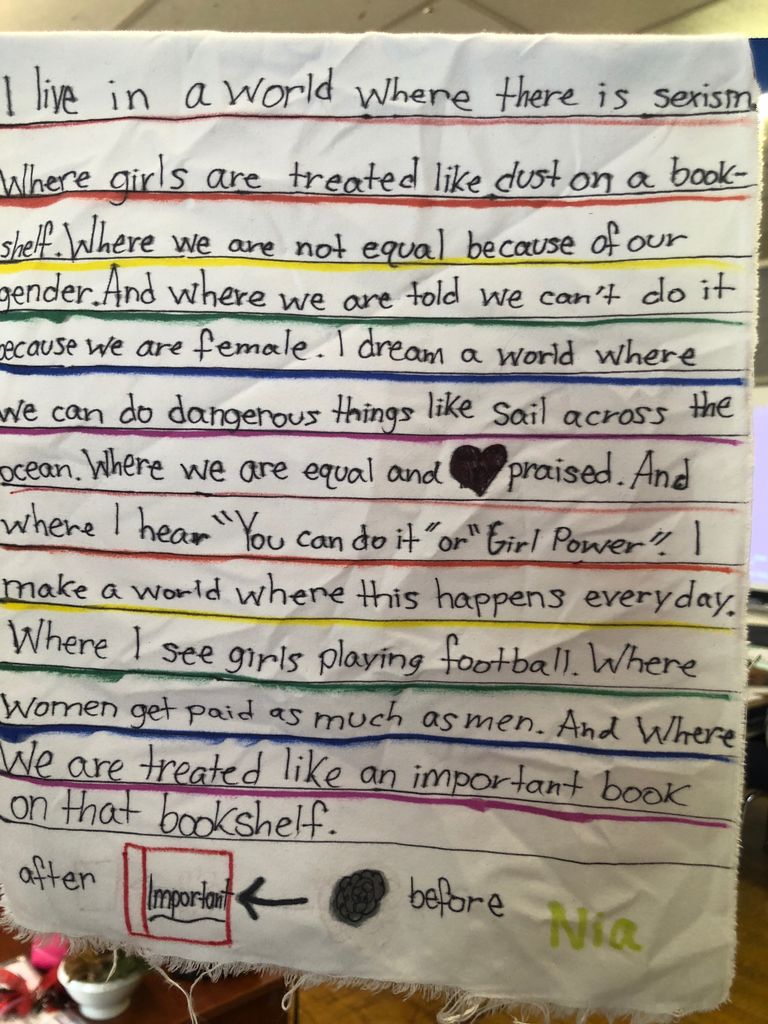 I live in a world where there is sexism.
Where girls are treated like dust on a book-
shelf. Where we are not equal because of our
gender. And where we are told we can't do it
because we are female. I dream a world where
we can do dangerous things like sail across the
ocean. Where we are equal and praised. And
where I hear "You can do it" or "Girl Power". I
make a world where this happens everyday.
Where I see girls playing football. Where
women get paid as much as men. And Where
We are treated like an important book
on that bookshelf.
after Important before
Nia